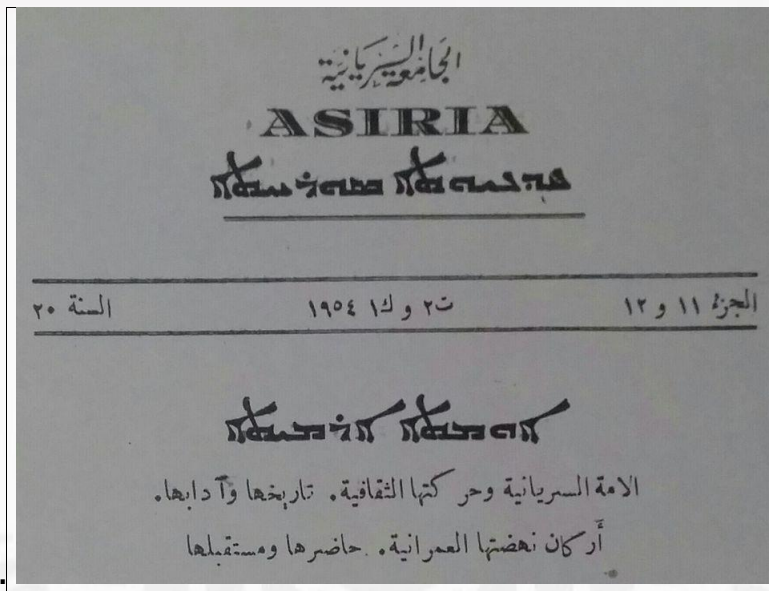 الجَامِعَة السِّرْيَانِيَّة
ASIRIA
الجزء ١١ و ١٢ ت٢ و ك١ ١٩٥٤ السنة ٢٠
ܐܘܡܬܐ ܐܪܡܝܬܐ
الامة السريانية وحركتها الثقافية. تاريخها وآدابها.
أركان نهضتها العمرانية. حاضرها ومستقبلها